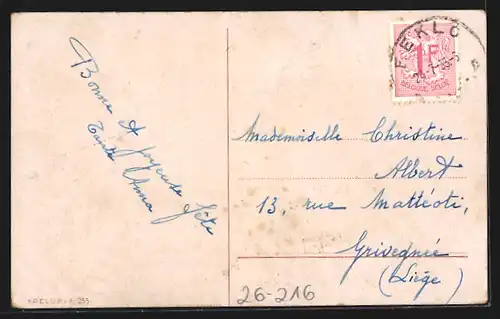 Bonne et joyeuse fête
Tante Anna
1F
BELGIQUE-BELGIE
Mademoiselle Christine
Albert
13, rue Mattéoti,
Grivegnée
(Liège)
26-216